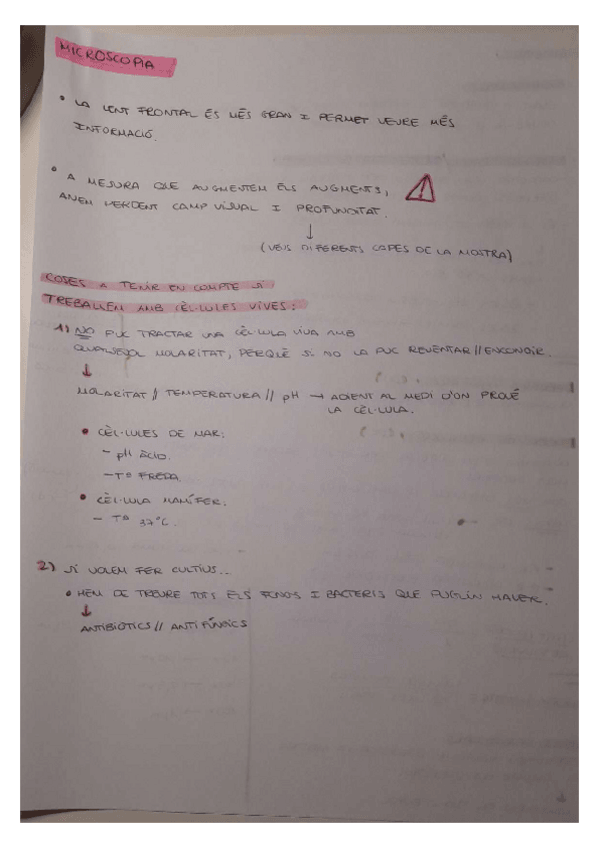 MICROSCOPIA
• LA LENT FRONTAL ÉS MÉS GRAN I PERMET VEURE MÉS
INFORMACIÓ.
• A MESURA QUE AUGMENTEM ELS AUGMENTS,
ANEM PERDENT CAMP VISUAL I PROFUNDITAT.
↓
(VEIS DIFERENTS CAPES DE LA MOSTRA)
COSES A TENIR EN COMPTE SI
TREBALLEM AMB CÈL·LULES VIVES:
1) NO PUC TRACTAR UNA CÈL·LULA VIVA AMB
QUALSEVOL MOLARITAT, PERQUÈ SI NO LA PUC REVENTAR//ENCONGIR.
↓
MOLARITAT // TEMPERATURA // pH → ADIENT AL MEDI D'ON PROVÉ
LA CÈL·LULA.
• CÈL·LULES DE MAR:
- pH ÀCID.
- Tª FREDA.
• CÈL·LULA MAMÍFER.
- Tª 37ºC.
2) SI VOLEM FER CULTIUS...
• HEM DE TREURE TOTS ELS FONGS I BACTERIS QUE PUGUIN HAVER.
↓
ANTIBIÒTICS // ANTIFÚNGICS